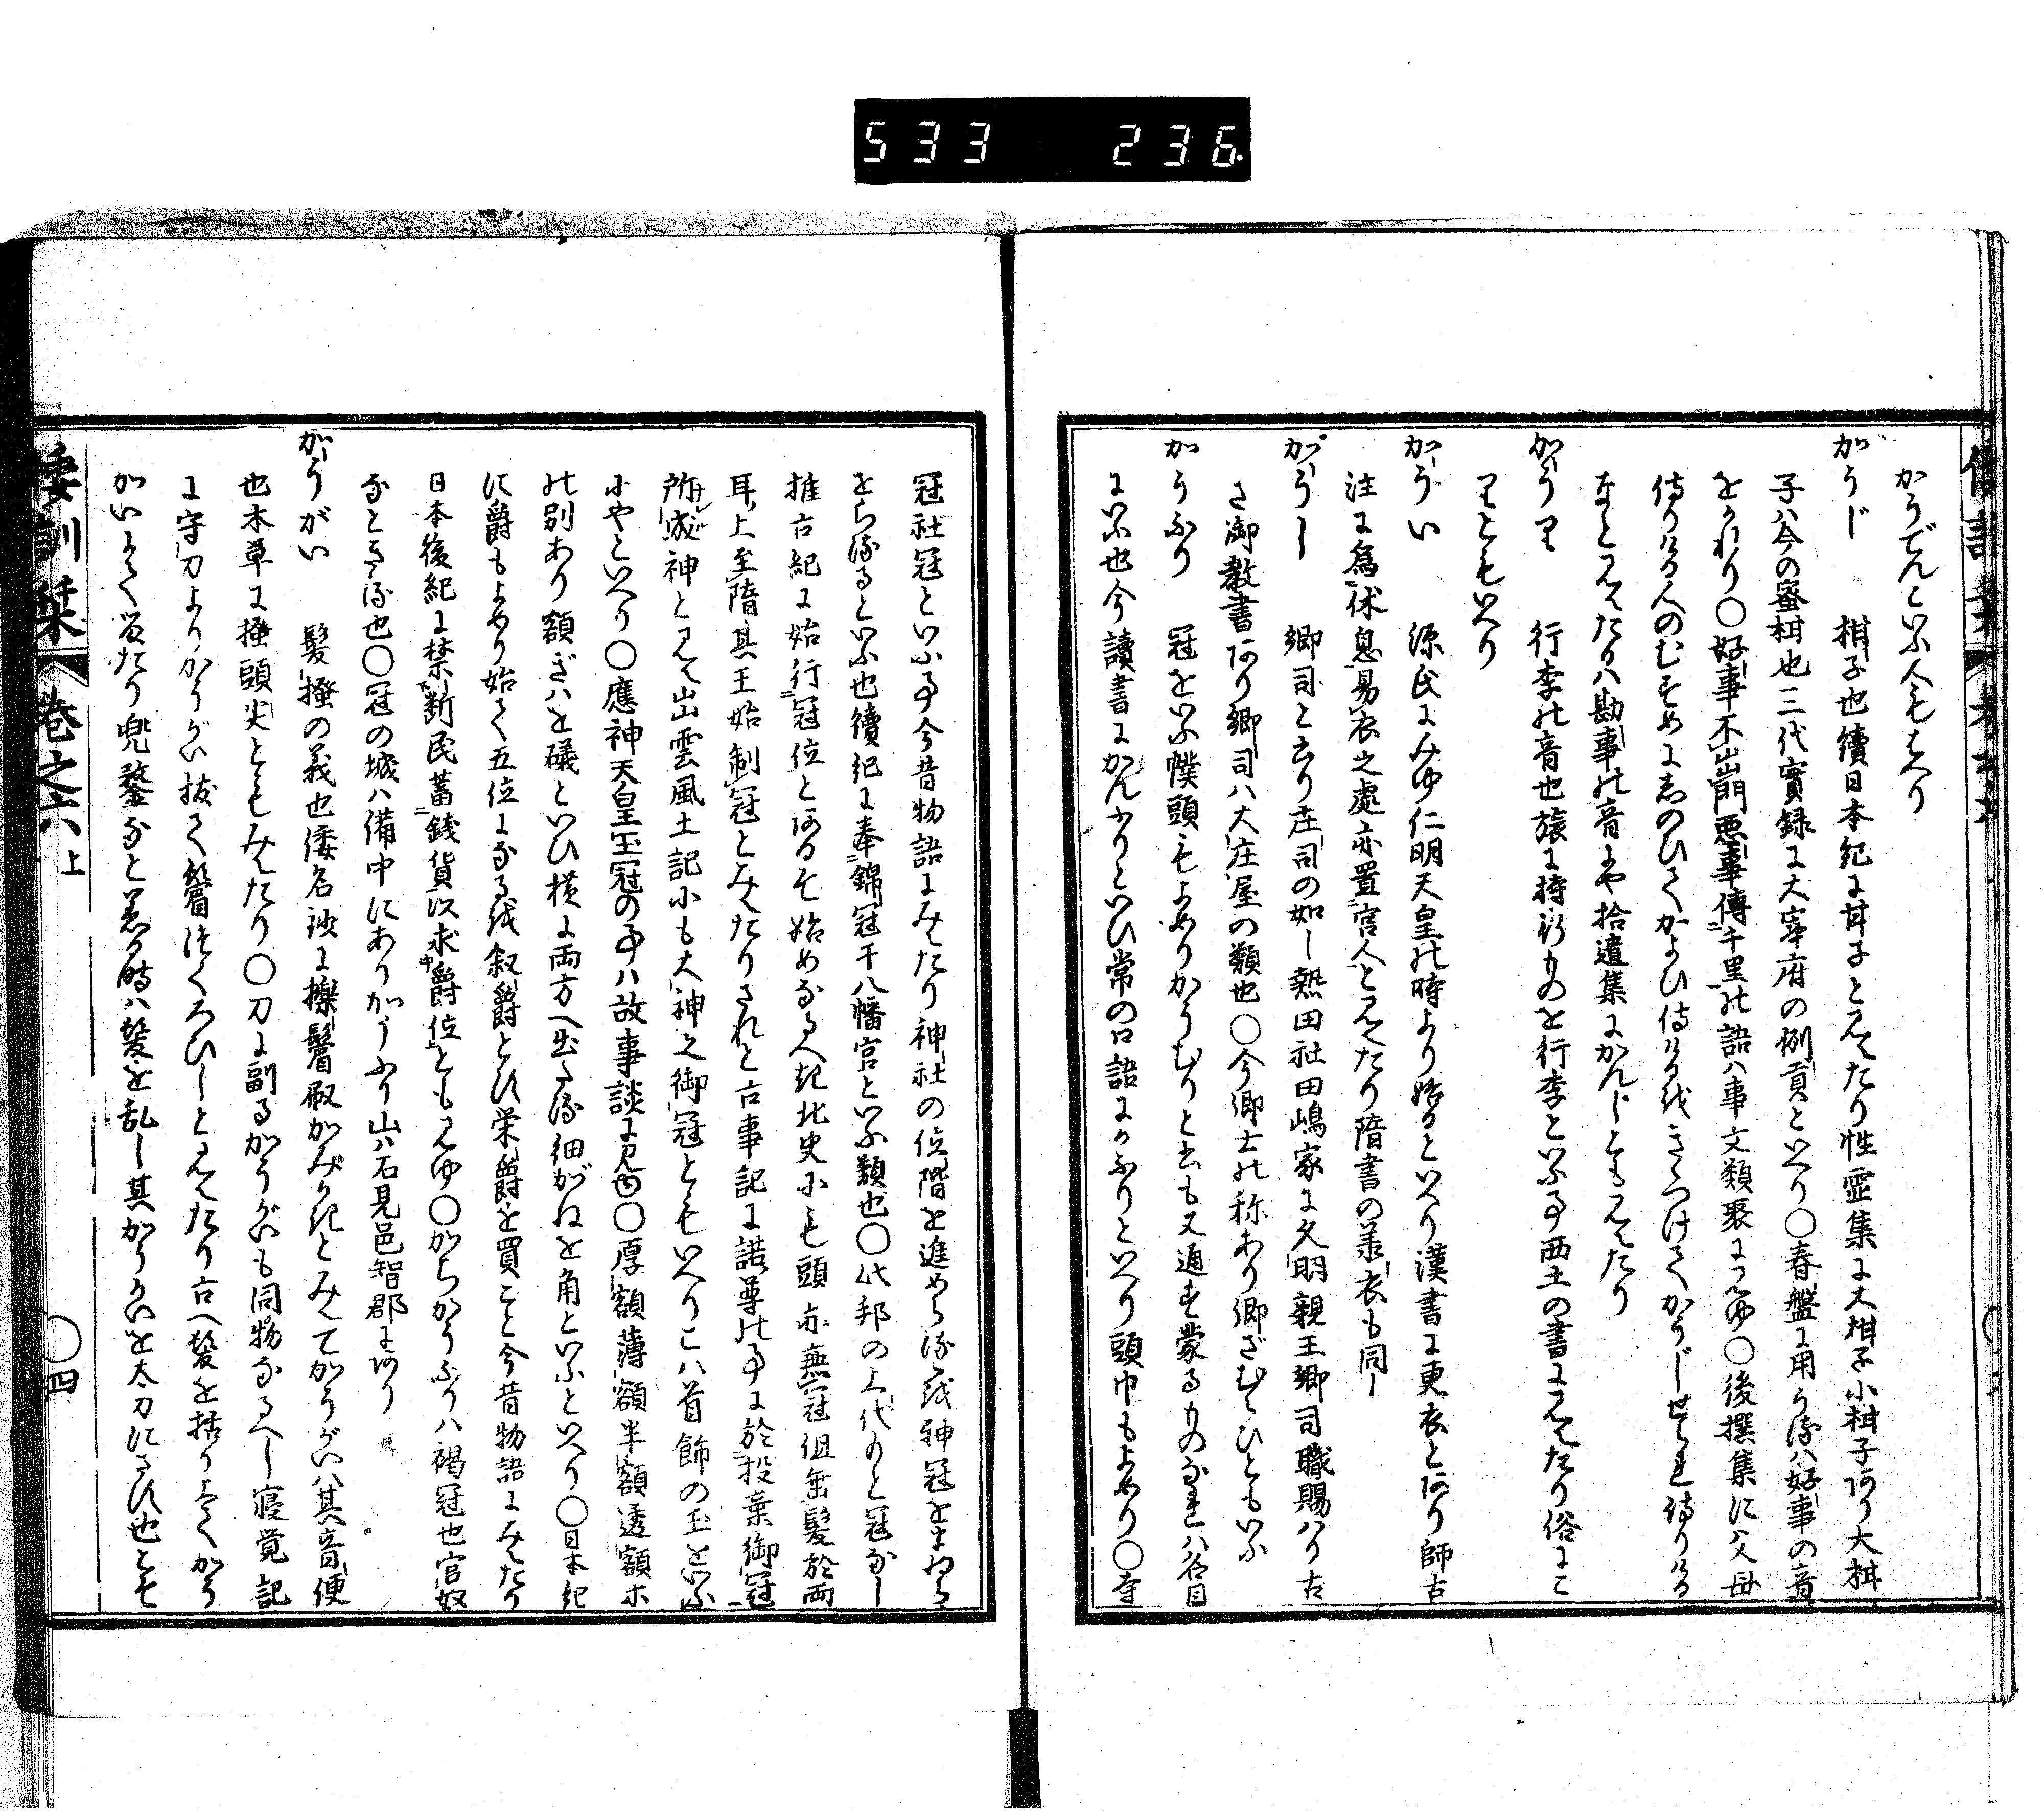 533 236
かうでんといふ人もをへり
かうじ 柑子也續日本紀に甘子と見えたり性霊集に大柑子小柑子あり大柑
子ハ今の蜜柑也三代實録に大宰府の例貢といへり〇春盤に用うるハ好事の音
をとれり〇好事不出門悪事傳千里の語ハ事文類聚に見ゆ〇後撰集に父母
侍りける人のむすめにしのひてかよひ侍りけるをきゝつけてかうじせられ侍りける
なと見えたるハ勘事の音にや拾遺集にかんじとも見えたり
かうり 行李の音也旅に持行ものを行李といふ事西土の書に見えたり俗にこ
りともいへり
かうい 源氏にみゆ仁明天皇の時より始るといへり漢書に更衣とあり師古
注に為休息易衣之處亦置宮人と見えたり隋書の羕衣も同し
がうし 郷司と書り庄司の如し熱田社田嶋家に久明親王郷司職賜ハり古
き御教書あり郷司ハ大庄屋の類也〇今郷士の称あり郷ざむらひともいふ
かうふり 冠をいふ幞頭もよめりかうむりと云も又通す蒙るものなれハ名目
にいふ也今讀書にかんふりといひ常の口語にかふりといへり頭巾もよめり〇寺
冠社冠といふ事今昔物語にみえたり神社の位階を進めらるを神冠をまゐら
をらるゝといふ也續紀に奉錦冠于八幡宮といふ類也〇此邦の上代ものと冠なし
推古紀に始行冠位とあるそ始めなるへき北史にも頭亦無冠但垂髪於両
耳上至隋其王始制冠とみえたりされと古事記に諾尊の事に於投棄御冠
所成神と見え出雲風土記にも大神之御冠ともいへりこハ首飾の玉をいふ
にやといへり〇應神天皇玉冠の事ハ故事談に見ゆ〇厚額薄額半額透額ホ
の別あり額ぎハを礒といひ横に両方へ出たる細がねを角といふといへり〇日本紀
に爵もよめり始て五位になるを叙爵といひ栄爵を買こと今昔物語にみえたり
日本後紀に禁断民蓄銭貨以求爵位とも見ゆ〇かちかうふりハ褐冠也官奴
なときる也〇冠の城ハ備中にありかうふり山ハ石見邑智郡にあり
かうがい 髪掻の義也倭名鈔に擽鬢取かみかきとみえてかうがいハ其音便
也本草に掻頭尖ともみえたり〇刀に副るかうがいも同物なるへし寝覚記
に守刀よりかうがい抜て鬢つくろひしと見えたり古へ髪を括り上てかう
かいにて留たり兜鍪なと着る時ハ髪を乱し其かうかいを太刀にさす也とそ
倭訓栞 巻之六 上
〇四